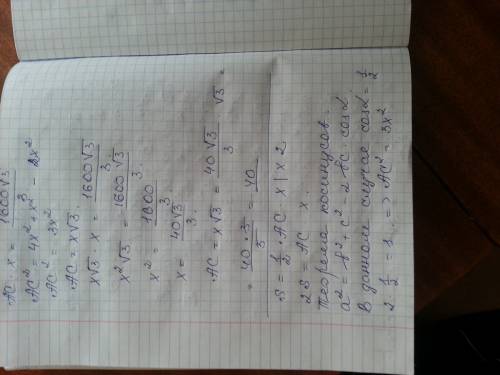 AC · x = 1600√3 / 3
AC² = 4x² + x² - 2x²
AC² = 3x²
AC = x√3.
x√3 · x = 1600√3 / 3
x²√3 = 1600√3 / 3
x² = 1600 / 3
x = 40√3 / 3
AC = x√3 = 40√3 / 3 · √3 =
= 40 · 3 / 3 = 40
S = 1/2 · AC · x | x 2
2S = AC x.
Теорема косинусов.
a² = b² + c² - 2 bc · cos α
В данном случае cos α = 1/2
2 1/2 = 1. => AC² = 3x²